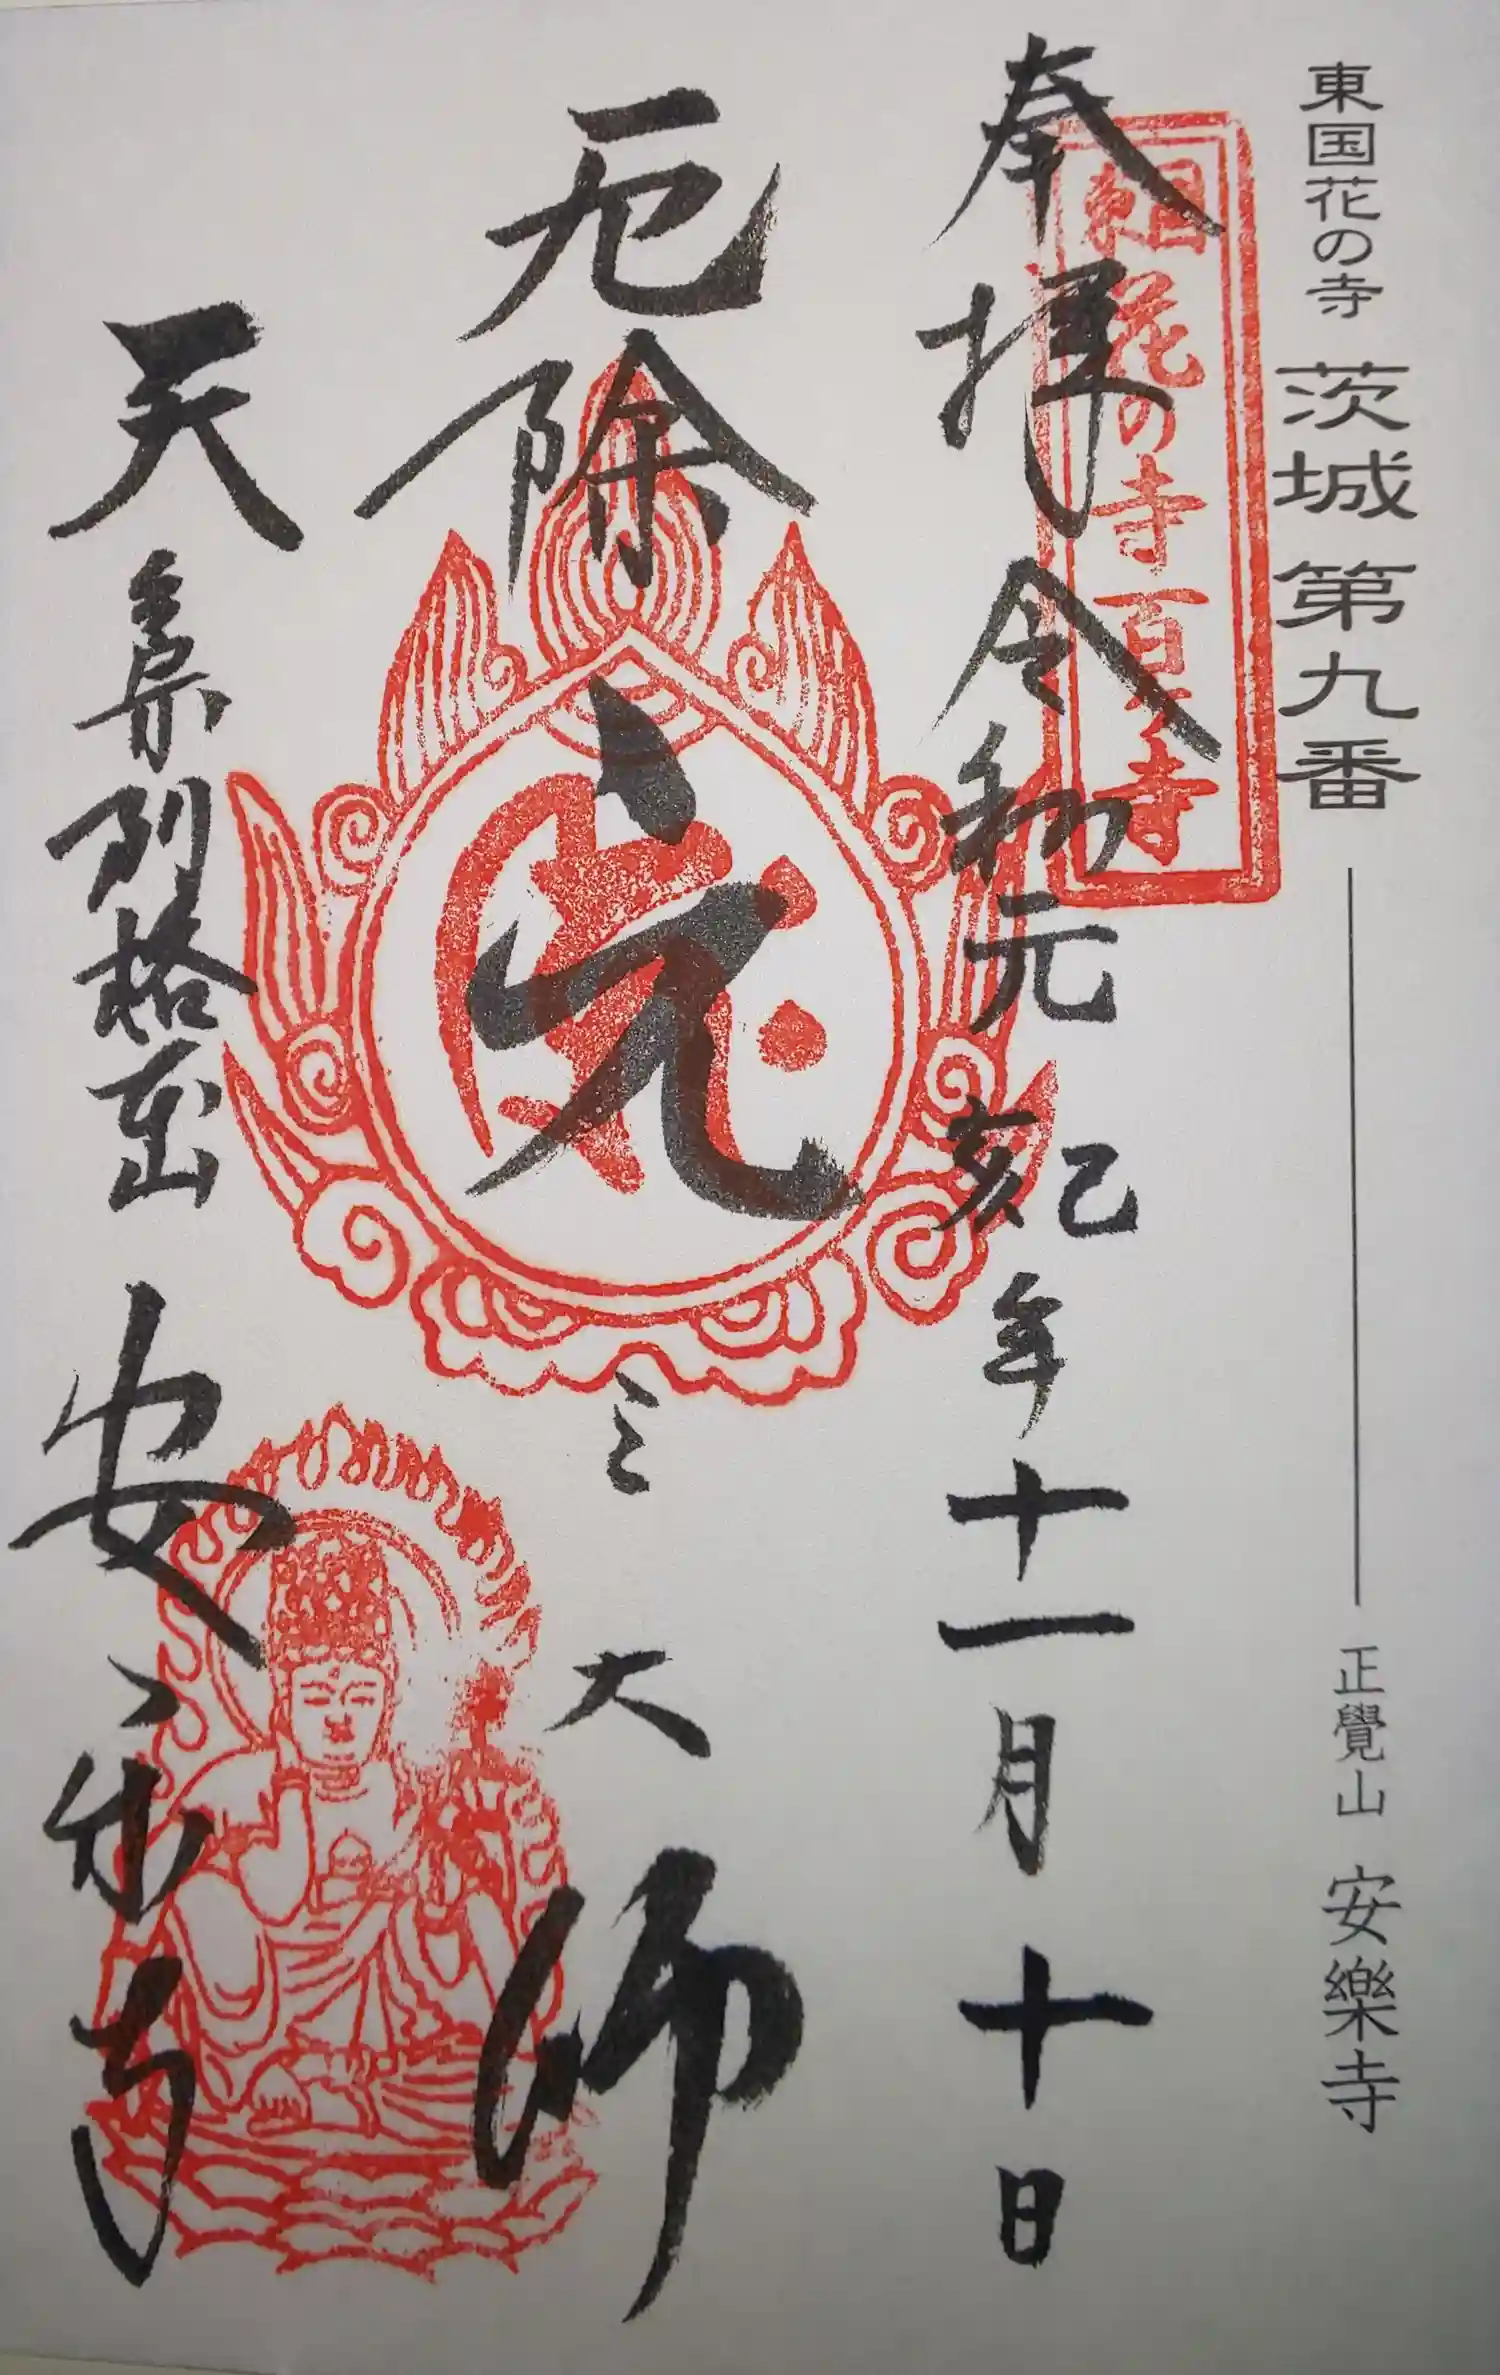 東国花の寺 茨城第九番 正覺山 安樂寺
東国花の寺百ヶ寺
奉拝 令和元 己亥 年十一月十日
厄除 元三大師
天台宗別格本山 安樂寺